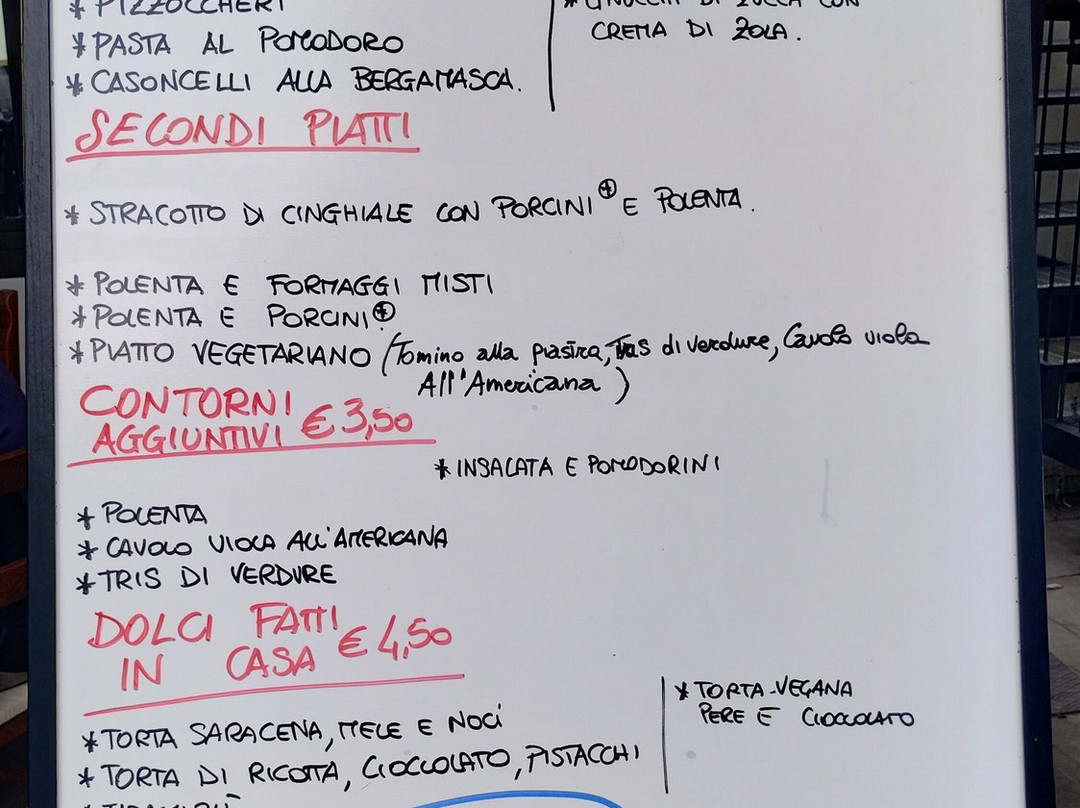 * PIZZOCCHERI
* PASTA AL POMODORO
* CASONCELLI ALLA BERGAMASCA.
* GNOCCHI DI ZUCCA CON
CREMA DI ZOLA.
SECONDI PIATTI
* STRACOTTO DI CINGHIALE CON PORCINI* E POLENTA.
* POLENTA E FORMAGGI MISTI
* POLENTA E PORCINI*
* PIATTO VEGETARIANO (Tomino alla piastra, Tris di verdure, Cavolo viola
All'Americana)
CONTORNI
AGGIUNTIVI € 3,50
* INSALATA E POMODORINI
* POLENTA
* CAVOLO VIOLA ALL'AMERICANA
* TRIS DI VERDURE
DOLCI FATTI
IN CASA € 4,50
* TORTA SARACENA, MELE E NOCI
* TORTA DI RICOTTA, CIOCCOLATO, PISTACCHI
* TIRAMISÙ
* TORTA-VEGANA
PERE E CIOCCOLATO